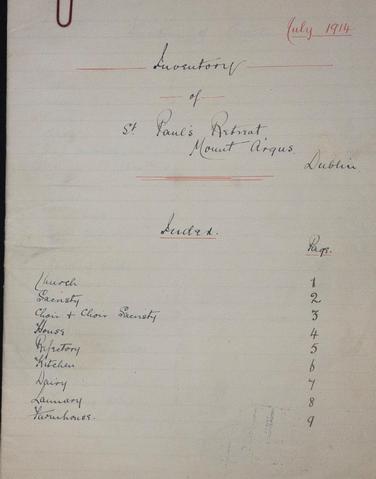 July 1914
Inventory
of
St Paul's Retreat,
Mount Argus
Dublin
Index.
Page.
Church 1
Sacristy 2
Choir & Choir Sacristy 3
House 4
Refectory 5
Kitchen 6
Dairy 7
Laundry 8
Farmhouse. 9